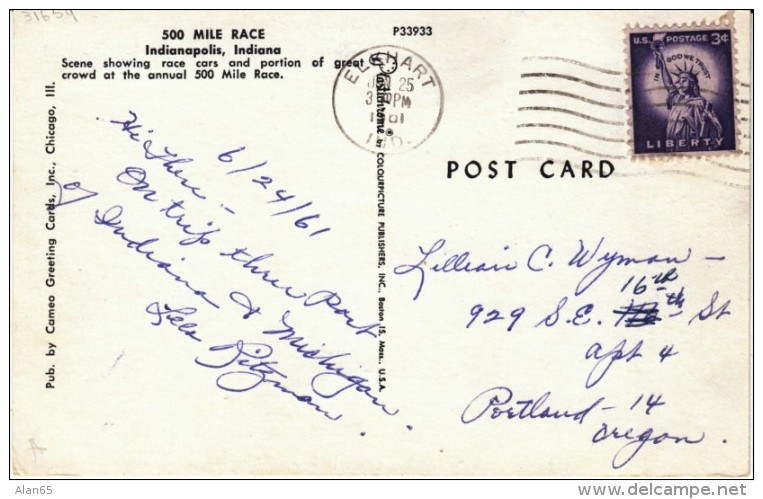 31654
500 MILE RACE
Indianapolis, Indiana
Scene showing race cars and portion of great
crowd at the annual 500 Mile Race.
P33933
ELKHART
25
PM
IND.
U.S. POSTAGE 3¢
IN GOD WE TRUST
LIBERTY
POST CARD
Pub. by Cameo Greeting Cards, Inc., Chicago, Ill.
by COLOURPICTURE PUBLISHERS, INC., Boston 15, Mass., U.S.A.
6/24/61
Hi There —
On trip thru Part
of Indiana & Michigan.
Lillian C. Wyman —
16th
929 S.E. St
Apt 4
Portland — 14
Oregon.
Alan65
delcampe.net